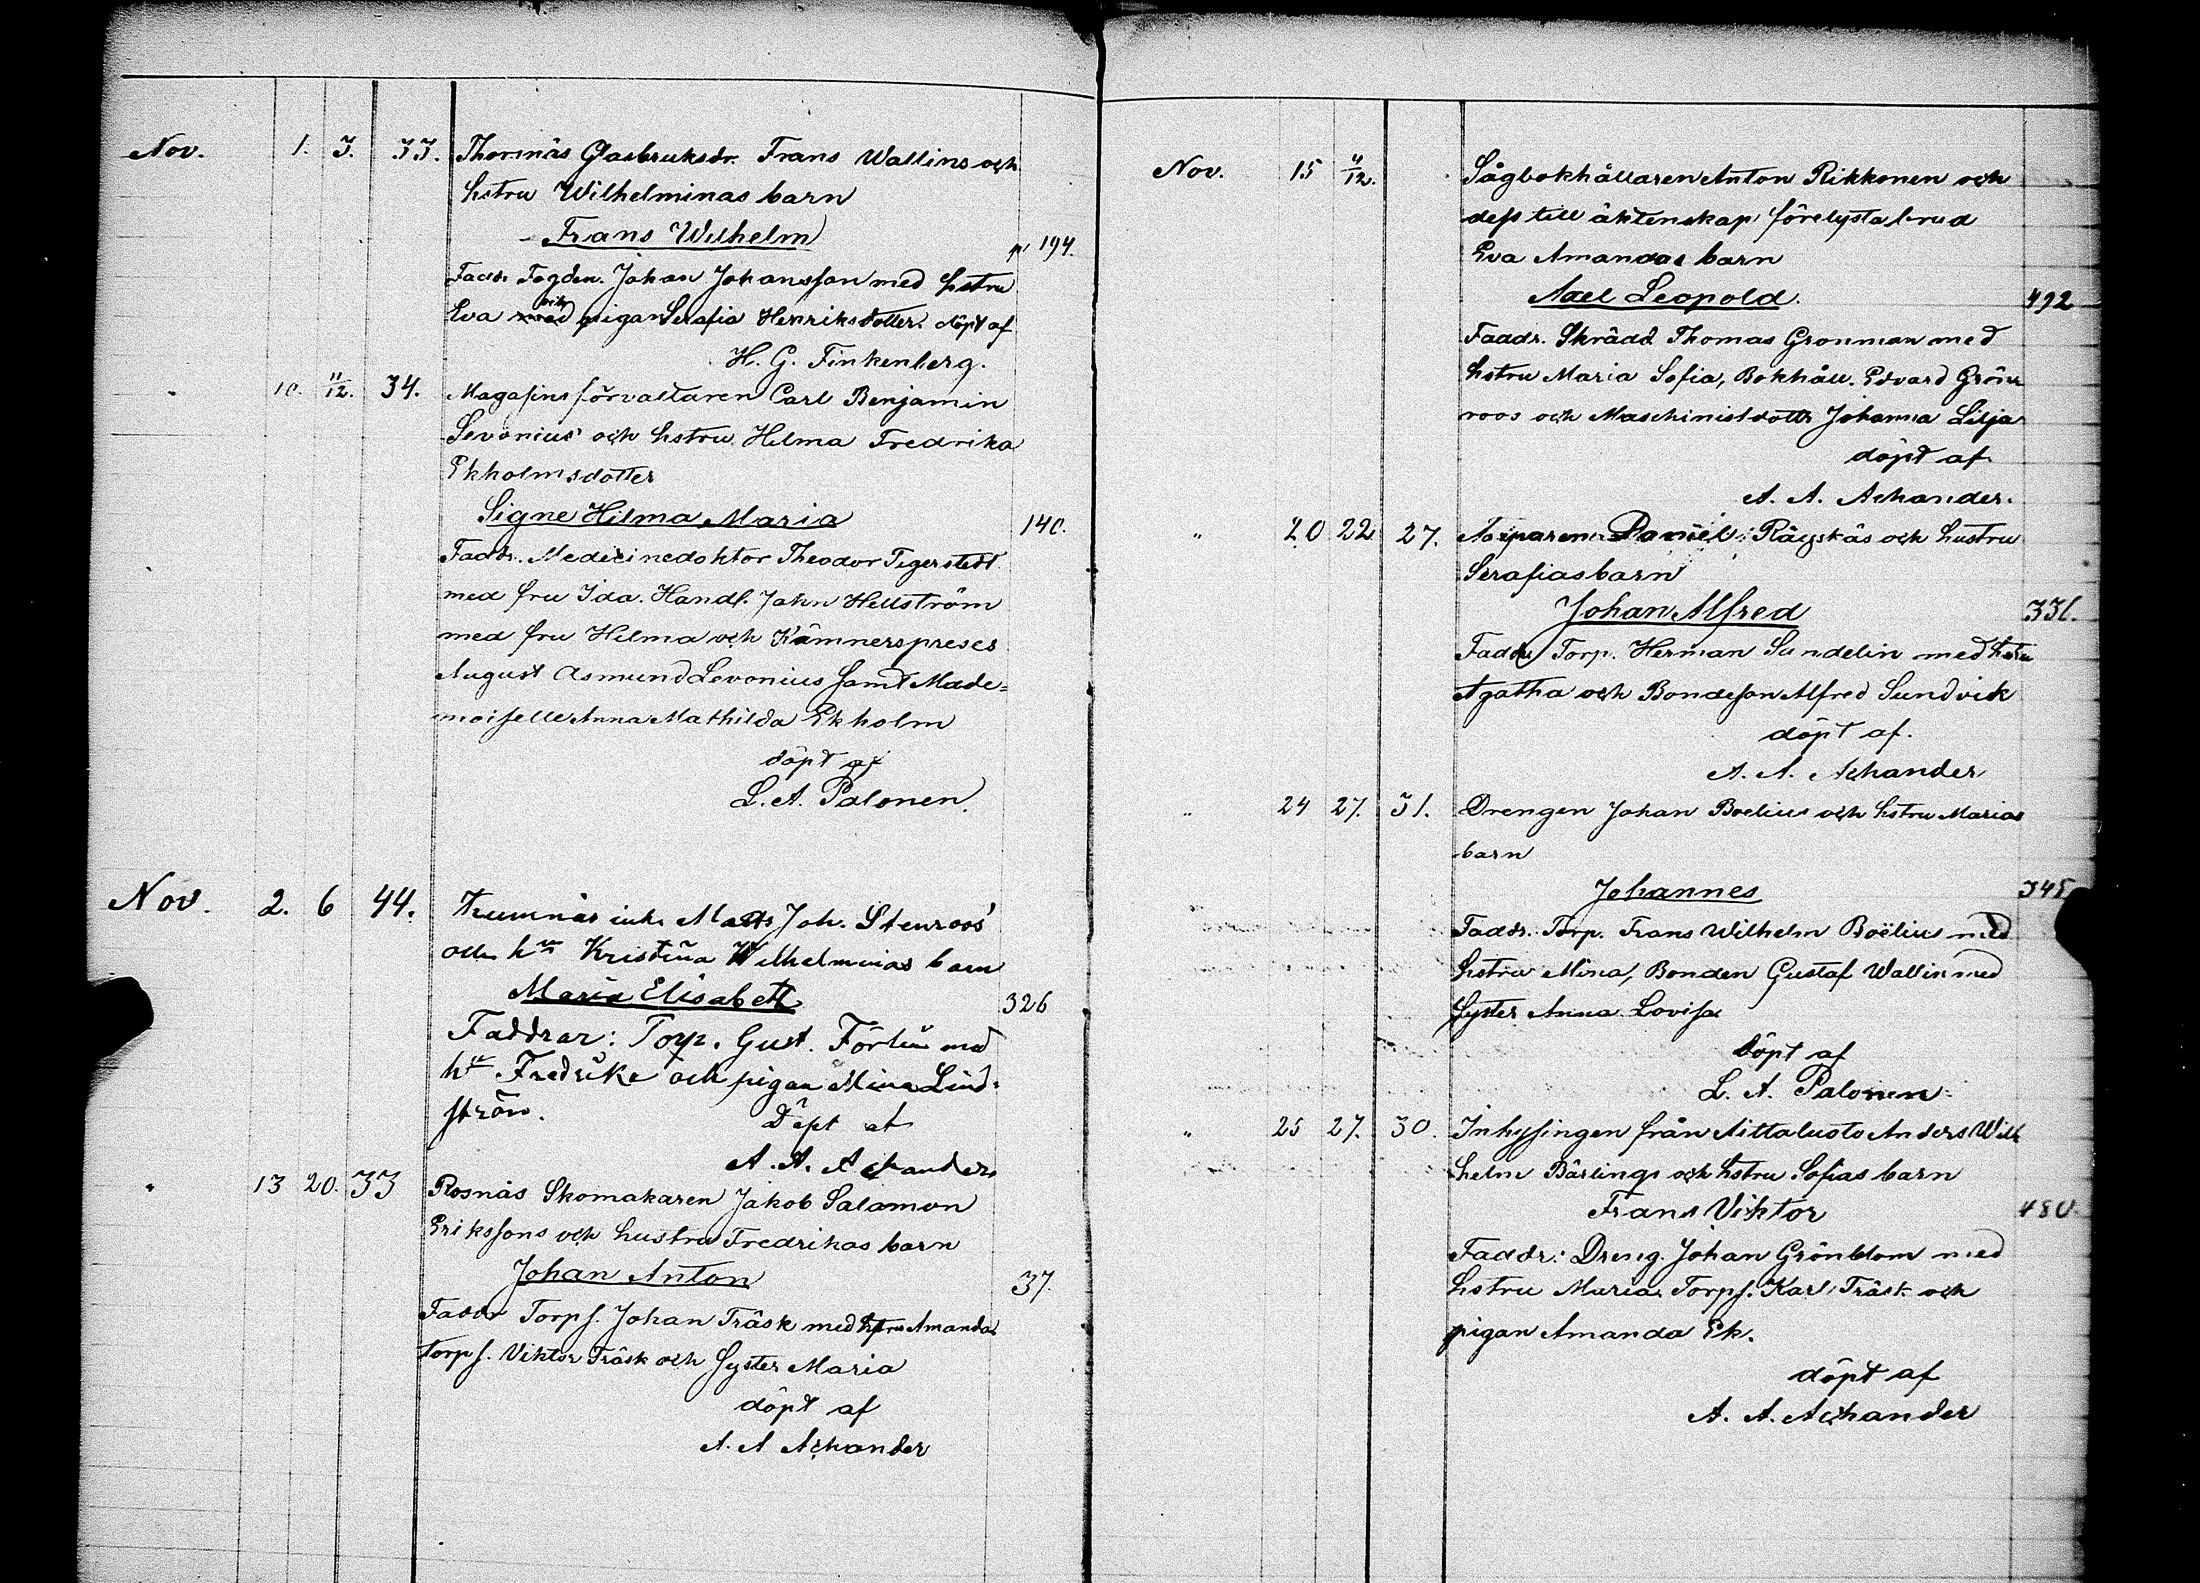 Nov. 1. 3. 33. Thornäs Glasbruksdr. Frans Wallins och
hstru Wilhelminas barn
Frans Wilhelm
p 194.
Faddr. Fogden. Johan Johansson med hstru
Eva pigan Serafia Henriksdotter. döpt af
H. G. Finkenberg.
" 10. 11/12. 34. Magasinsförvaltaren Carl Benjamin
Levonius och hstru Hilma Fredrika
Ekholmsdotter
Signe Hilma Maria 140.
Faddr. Medicinedoktor Theodor Tigerstedt
med fru Ida. Handl. John Hellström
med fru Hilma och Kämnerspreses
August Asmund Levonius samt Made-
moiselle Anna Mathilda Ekholm
döpt af
L. A. Palonen.
Nov. 2. 6 44. inh. Matts Joh. Stenroos'
och hu Kristina Wilhelminas barn
Maria Elisabeth 326
Faddrar: Torp. Gust. Förlin med
hu Fredrike och pigan Mina Lind-
ström. Döpt af
A. A. Achander
" 13 20. 33 Rosnäs Skomakaren Jakob Salamon
Erikssons och hustru Fredrikas barn
Johan Anton 37.
Faddr Torps. Johan Träsk med hstru Amanda
torps. Viktor Träsk och syster Maria
döpt af
A. A Achander
Nov. 15 11/12. Sågbokhållaren Anton Rikkonen och
dess till äktenskap förelysta brud
Eva Amandas barn
Axel Leopold. 492
Faddr. Skrädd Thomas Gronman med
hstru Maria Sofia, Bokhåll. Edvard Grön
roos och Maschinistdottr Johanna Lilja
döpt af
A. A. Achander.
" 20 22 27. Daniel Räyskäs och hustru
Serafias barn
Johan Alfred 331.
Faddr Torp. Herman Sundelin med hstru
Agatha och Bondeson Alfred Sundvik
döpt af.
A. A. Achander
" 24 27. 31. Drengen Johan Boelius och hstru Marias
barn
Johannes 345
Faddr. Torp. Frans Wilhelm Boëlius med
hstru Mina, Bonden Gustaf Wallin med
syster Anna Lovisa
döpt af
L. A. Palonen
" 25 27. 30. Inhysingen från Aittalusto Anders Wil
helm Bärlings och hstru Sofias barn
Frans Viktor 480.
Faddr: Dreng. Johan Grönblom med
hstru Maria. Torps. Karl Träsk och
pigan Amanda Ek.
döpt af
A. A. Achander